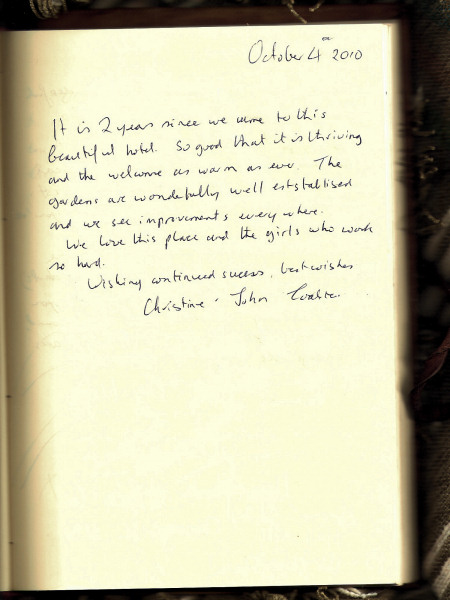 October 4th 2010
It is 2 years since we came to this
beautiful hotel. So good that it is thriving
and the welcome as warm as ever. The
gardens are wonderfully well established
and we see improvements everywhere.
We love this place and the girls who work
so hard.
Wishing continued success, best wishes
Christine & John